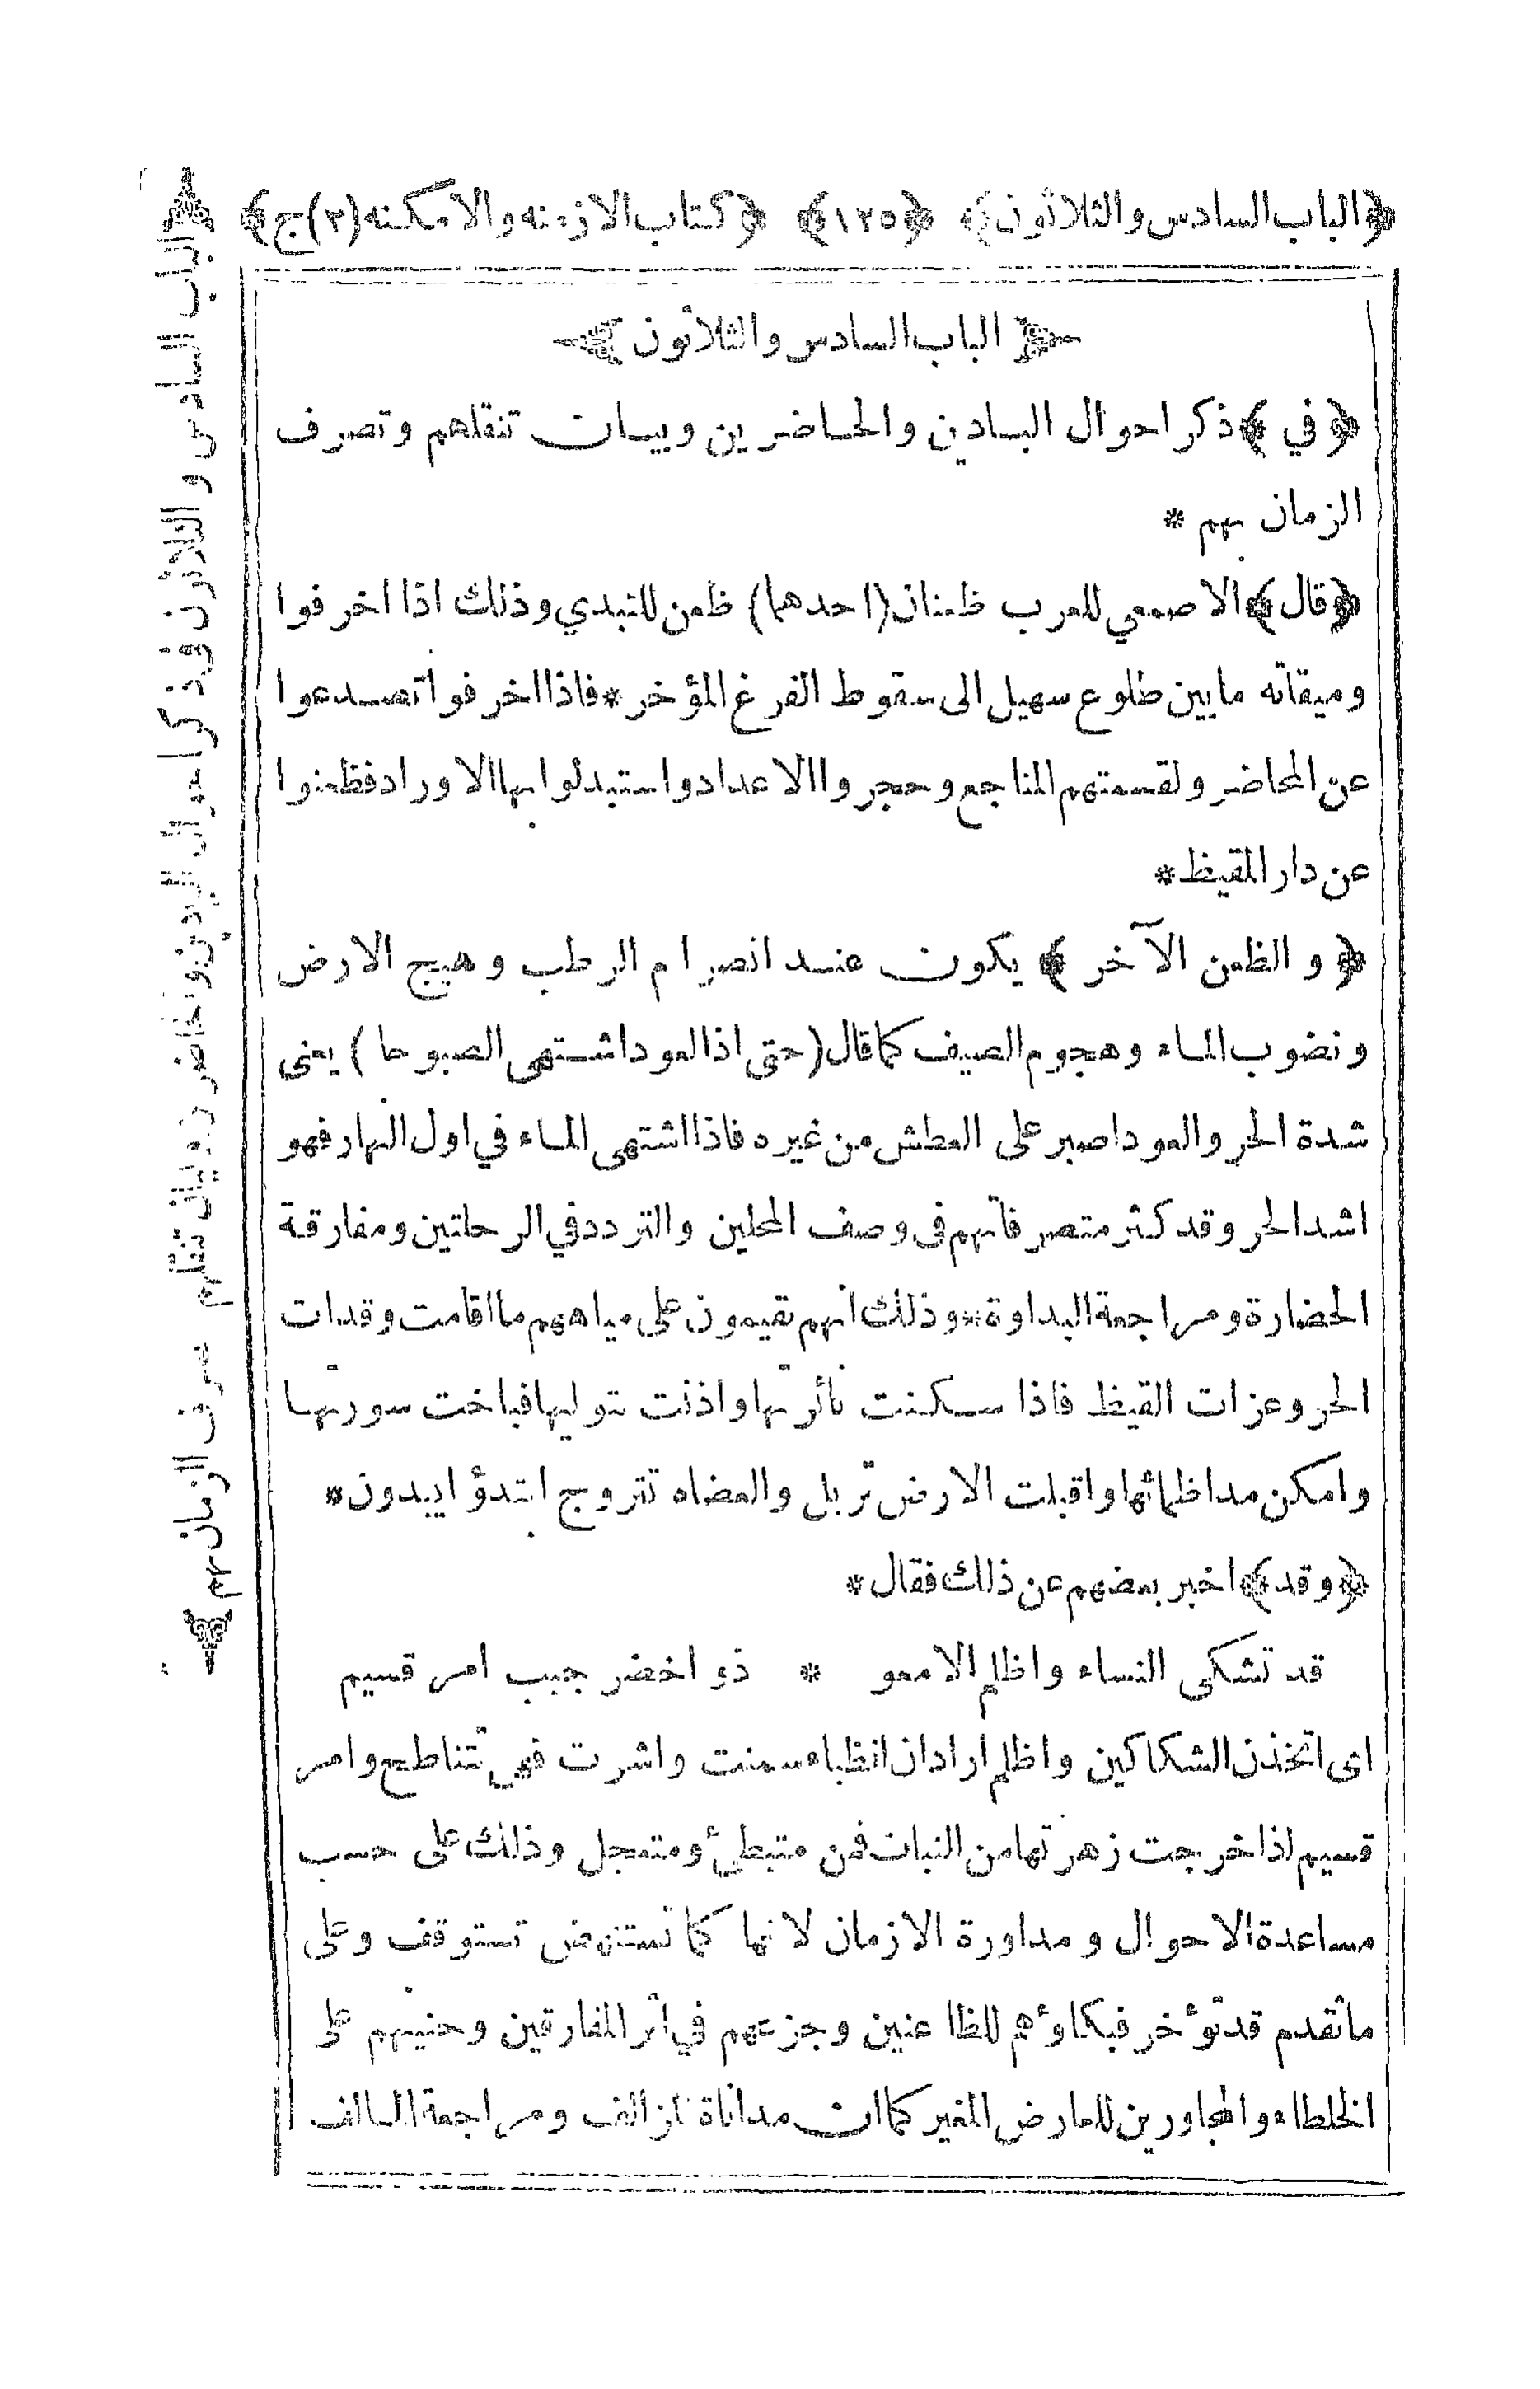 ﴿الباب السادس والثلاثون﴾ ﴿١٢٥﴾ ﴿كتاب الازمنه والامكنه (٢) ج﴾
الباب السادس والثلاثون
﴿في﴾ ذكر احوال البادين والحاضرين وبيان تنقلهم وتصرف
الزمان بهم *
﴿قال﴾ الاصمعي للعرب ظعنان (احدهما) ظعن للتبدي وذلك اذا اخرفوا
وميقاته مابين طلوع سهيل الى سقوط الفرغ المؤخر * فاذا اخرفوا تصدعوا
عن المحاضر ولقسمتهم المناجع وهجروا الاعداد واستبدلوا بها الاوراد فظعنوا
عن دار المقيظ *
﴿والظعن الآخر﴾ يكون عند انصرام الرطب وهيج الارض
ونضوب الماء وهجوم الصيف كما قال (حتى اذا العود اشتهى الصبوحا) يعنى
شدة الحر والعود اصبر على العطش من غيره فاذا اشتهى الماء في اول النهار فهو
اشد الحر وقد كثر متصرفاتهم فى وصف المحلين والتردد في الرحلتين ومفارقة
الحضارة ومراجعة البداوة * وذلك انهم يقيمون على مياههم ما اقامت وقدات
الحر وعزات القيظ فاذا سكنت نائرتها واذنت بتوليها فباخت سورتها
وامكن مد اظمائها واقبلت الارض تربل والعضاه تتروح ابتدؤا يبدون *
﴿وقد﴾ اخبر بعضهم عن ذلك فقال *
قد تشكى النساء واظلم الامعو * ذو اخضر جبب امر قسيم
اى اتخذن الشكاكين واظلم ارادان الظباء سمنت واشرت فهى تتناطح وامر
قسيم اذا خرجت زهرتها من النبات فمن متبطئ ومتعجل وذلك على حسب
مساعدة الاحوال ومداورة الازمان لانها كما تستنهض تستوقف وعلى
ماتقدم قد تؤخر فبكاؤهم للظاعنين وجزعهم في اثر المفارقين وحنينهم على
الخلطاء والمجاورين للعارض المغير كما ان مداناة ومراجعة السالف
الباب السادس والثلاثون فى ذكر احوال البادين والحاضرين وبيان تنقلهم وتصرف الزمان بهم